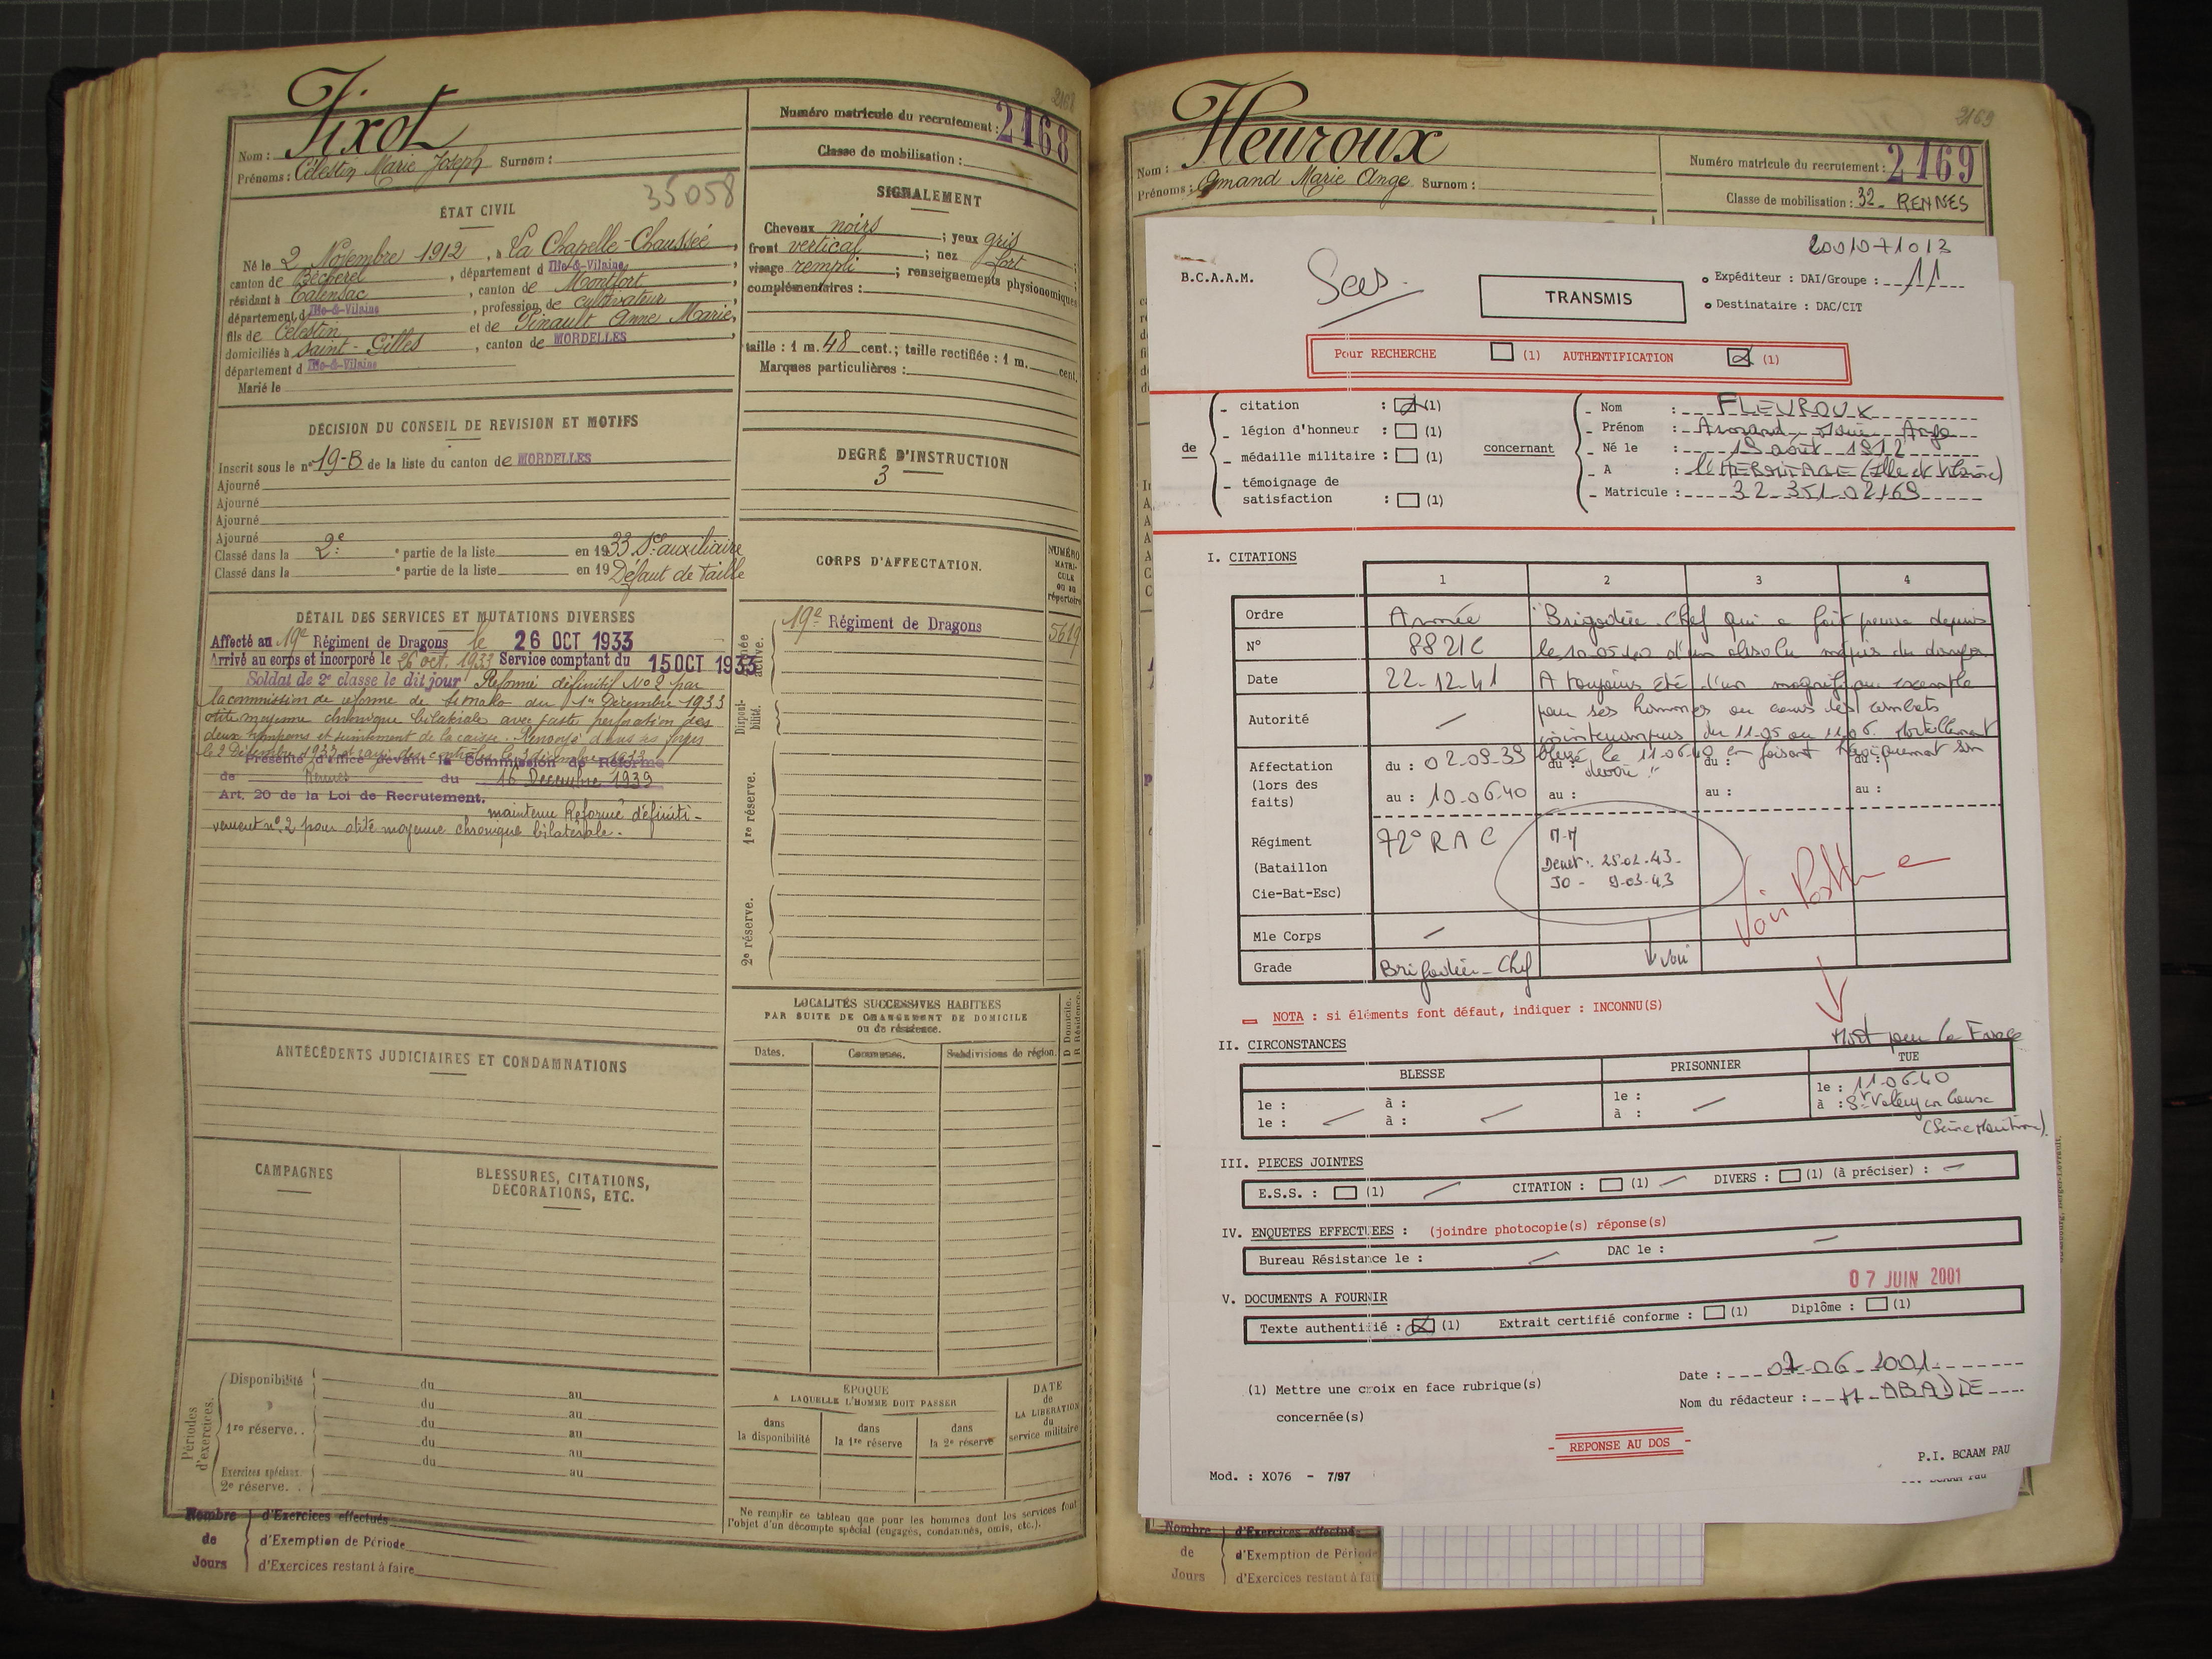 2168
Nom : Fixot
Prénoms : Célestin Marie Joseph Surnom :
Numéro matricule du recrutement : 2168
Classe de mobilisation :
35058
ÉTAT CIVIL
Né le 2 Novembre 1912, à La Chapelle-Chaussée,
canton de Bécherel, département d Ille-&-Vilaine,
résidant à Talensac, canton de Montfort,
département d Ille-&-Vilaine, profession de cultivateur,
fils de Célestin et de Pinault Anne Marie,
domiciliés à Saint-Gilles, canton de MORDELLES
département d Ille-&-Vilaine
Marié le
SIGNALEMENT
Cheveux noirs ; yeux gris
front vertical ; nez fort ;
visage rempli ; renseignements physionomiques
complémentaires :
taille : 1 m. 48 cent.; taille rectifiée : 1 m. cent.
Marques particulières :
DÉCISION DU CONSEIL DE REVISION ET MOTIFS
Inscrit sous le n° 19-B de la liste du canton de MORDELLES
Ajourné
Ajourné
Ajourné
Ajourné
Classé dans la 2e partie de la liste en 1933 Sce auxiliaire
Classé dans la e partie de la liste en 19 Défaut de taille
DEGRÉ D'INSTRUCTION
3
DÉTAIL DES SERVICES ET MUTATIONS DIVERSES
Affecté au 19e Régiment de Dragons le 26 OCT 1933
Arrivé au corps et incorporé le 26 oct. 1933 Service comptant du 15 OCT 1933
Soldat de 2e classe le dit jour Réformé définitif No 2 par
la commission de réforme de du 1er Décembre 1933
otite moyenne chronique bilatérale avec vaste perforation des
deux tympans et suintement de la caisse. Renvoyé dans ses foyers
le 2 Décembre 1933 et rayé des contrôles le 3 décembre 1933
Présenté d'office devant la Commission de Réforme
de Rennes du 16 Décembre 1939
Art. 20 de la Loi de Recrutement.
maintenu Réformé définiti-
vement n° 2 pour otite moyenne chronique bilatérale.
CORPS D'AFFECTATION.
NUMÉRO MATRI-CULE ou au répertoire
Armée active.
19e Régiment de Dragons
5619
Disponi-bilité.
1re réserve.
2e réserve.
LOCALITÉS SUCCESSIVES HABITÉES
PAR SUITE DE CHANGEMENT DE DOMICILE
ou de résidence.
Dates.
Communes.
Subdivisions de région.
D Domicile.
R Résidence.
ANTÉCÉDENTS JUDICIAIRES ET CONDAMNATIONS
CAMPAGNES
BLESSURES, CITATIONS,
DÉCORATIONS, ETC.
Périodes d'exercices.
Disponibilité
1re réserve..
Exercices spéciaux.
2e réserve..
du au
du au
du au
du au
du au
au
ÉPOQUE
A LAQUELLE L'HOMME DOIT PASSER
dans la disponibilité
dans la 1re réserve
dans la 2e réserve
DATE de LA LIBÉRATION du service militaire
Ne remplir ce tableau que pour les hommes dont les services font
l'objet d'un décompte spécial (engagés, condamnés, omis, etc.).
Nombre de Jours
d'Exercices effectués
d'Exemption de Période
d'Exercices restant à faire
2169
Nom : Fleuroux
Prénoms : Amand Marie Ange Surnom :
Numéro matricule du recrutement : 2169
Classe de mobilisation : 32 - RENNES
B.C.A.A.M.
TRANSMIS
Expéditeur : DAI/Groupe : 11
Destinataire : DAC/CIT
Pour RECHERCHE (1) AUTHENTIFICATION (1)
de
- citation : (1)
- légion d'honneur : (1)
- médaille militaire : (1)
- témoignage de satisfaction : (1)
concernant
- Nom : FLEUROUX
- Prénom : Armand Marie Ange
- Né le : 19 août 1912
- A : l'HERMITAGE (Ille et Vilaine)
- Matricule : 32-351-02169
I. CITATIONS
1 2 3 4
Ordre Armée
N° 8821C
Date 22-12-41
Autorité /
"Brigadier-Chef qui a fait preuve depuis
le 10-05-40 d'un absolu mépris du danger
A toujours été d'un magnifique exemple
pour ses hommes au cours des combats
ininterrompus du 11-05 au 11-06. Mortellement
blessé le 11-06-40 en faisant héroïquement son
devoir"
Affectation (lors des faits)
du : 02-09-39 du : du : du :
au : 10-06-40 au : au : au :
Régiment (Bataillon Cie-Bat-Esc)
72° R A C
M-M
Décret : 25-02-43-
JO - 9-03-43
Mle Corps /
Grade Brigadier-Chef
voir
NOTA : si éléments font défaut, indiquer : INCONNU(S)
II. CIRCONSTANCES
Mort pour la France
BLESSE PRISONNIER TUE
le : à : le : le : 11-06-40
le : à : à : à : St Valery en Caux
(Seine Maritime).
III. PIECES JOINTES
E.S.S. : (1) CITATION : (1) DIVERS : (1) (à préciser) :
IV. ENQUETES EFFECTUEES : (joindre photocopie(s) réponse(s)
Bureau Résistance le : DAC le :
07 JUIN 2001
V. DOCUMENTS A FOURNIR
Texte authentifié : (1) Extrait certifié conforme : (1) Diplôme : (1)
Date : 07-06-2001
Nom du rédacteur : H. ABADIE
(1) Mettre une croix en face rubrique(s)
concernée(s)
- REPONSE AU DOS -
Mod. : X076 - 7/97
P.I. BCAAM PAU
Nombre de Jours
d'Exercices effectués
d'Exemption de Période
d'Exercices restant à fai